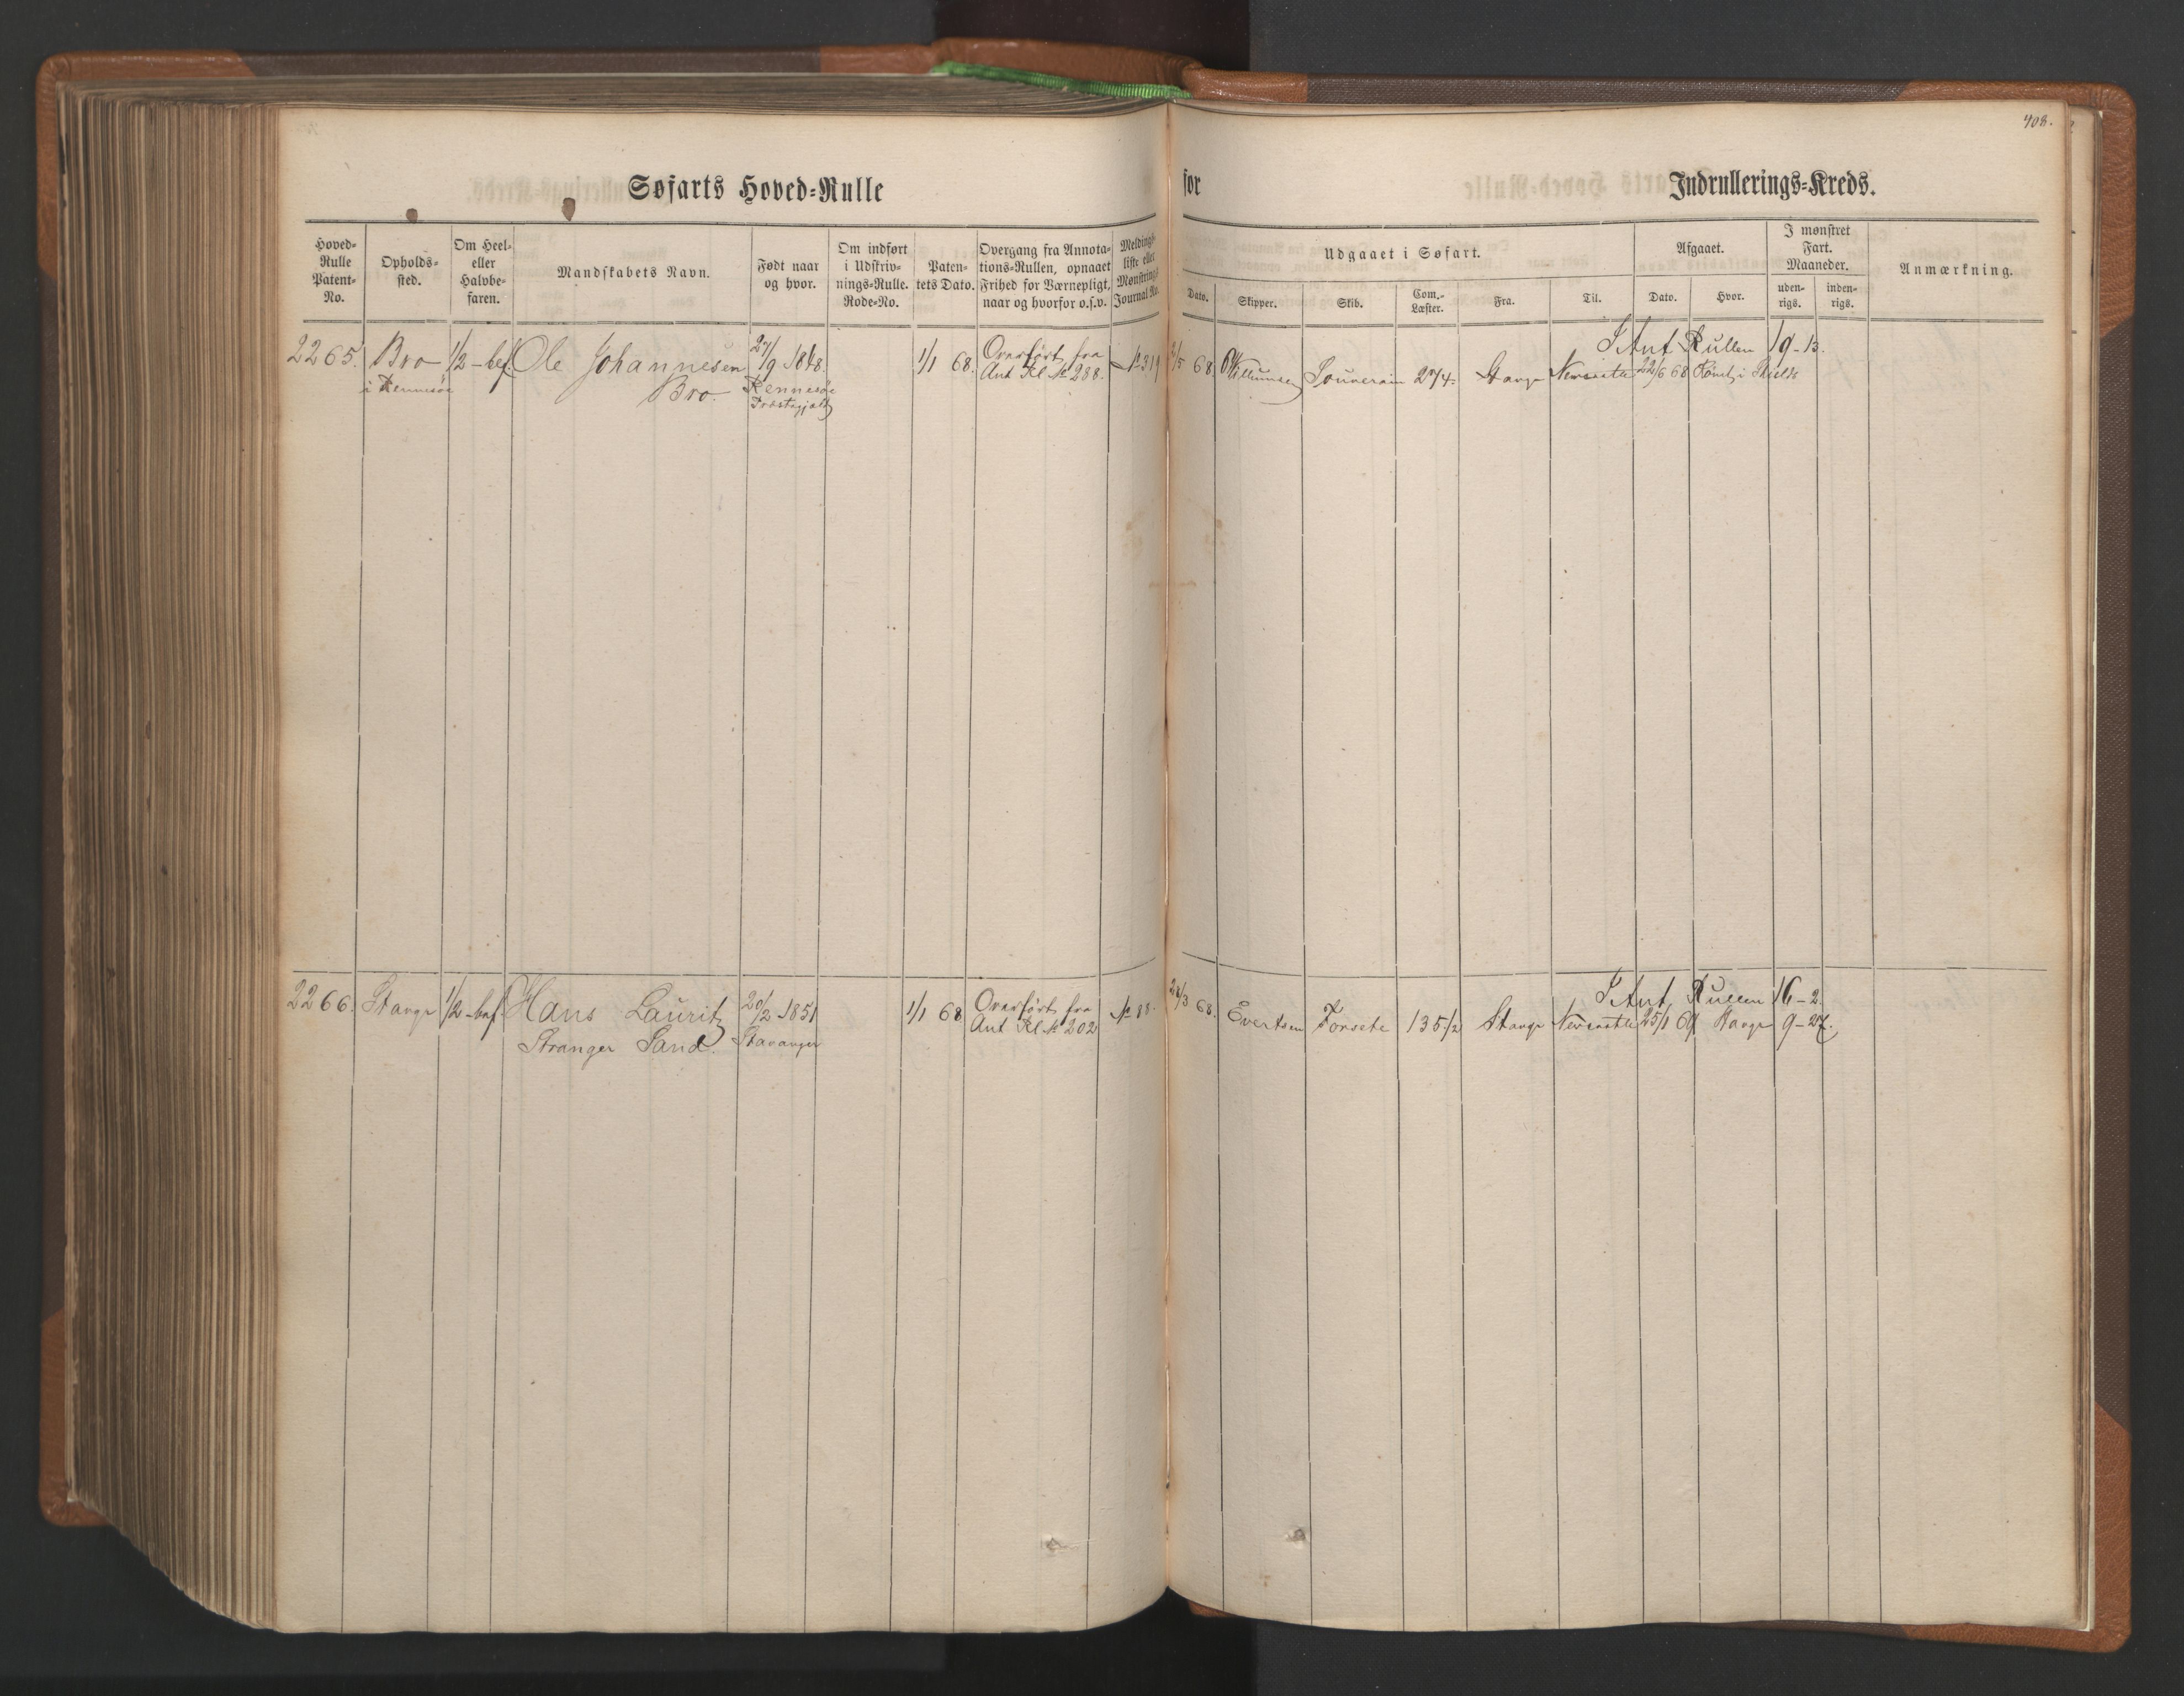 408.
Søfarts Hoved-Rulle
for Indrullerings-Kreds.
Hoved-
Rulle
Patent-
No.
Opholds-
sted.
Om Heel-
eller
Halvbe-
faren.
Mandskabets Navn.
Født naar
og hvor.
Om indført
i Udskriv-
nings-Rulle.
Rode-No.
Paten-
tets Dato.
Overgang fra Annota-
tions-Rullen, opnaaet
Frihed for Værnepligt,
naar og hvorfor o.s.v.
Meldings-
liste eller
Mønstrings
Journal No.
Udgaaet i Søfart.
Dato.
Skipper.
Skib.
Com.-
Læster.
Fra.
Til.
Afgaaet.
Dato.
Hvor.
I mønstret
Fart.
Maaneder.
uden-
rigs.
inden-
rigs.
Anmærkning.
I Ant Rullen 19-13.
2265. Bro 1/2-bef. Ole Johannesen 27/9 1848. 1/1 68. Overført fra № 319 2/5 68 Souverain 274. Stavgr Newcastle 22/6 68 Rømt i Shields
i Rennesøe Bro. Rennesøe Ant Rl № 288.
Præstegjæld
I Ant. Rullen 16-2.
2266. Stavgr 1/2-bef. Hans Lauritz 20/2 1851 1/1 68 Overført fra № 88. 68. Evertsen Forsete 135 1/2 Stavgr Newcastle 25/1 69 Stavgr 9-27.
Stranger Sand. Stavanger Ant Rl № 202